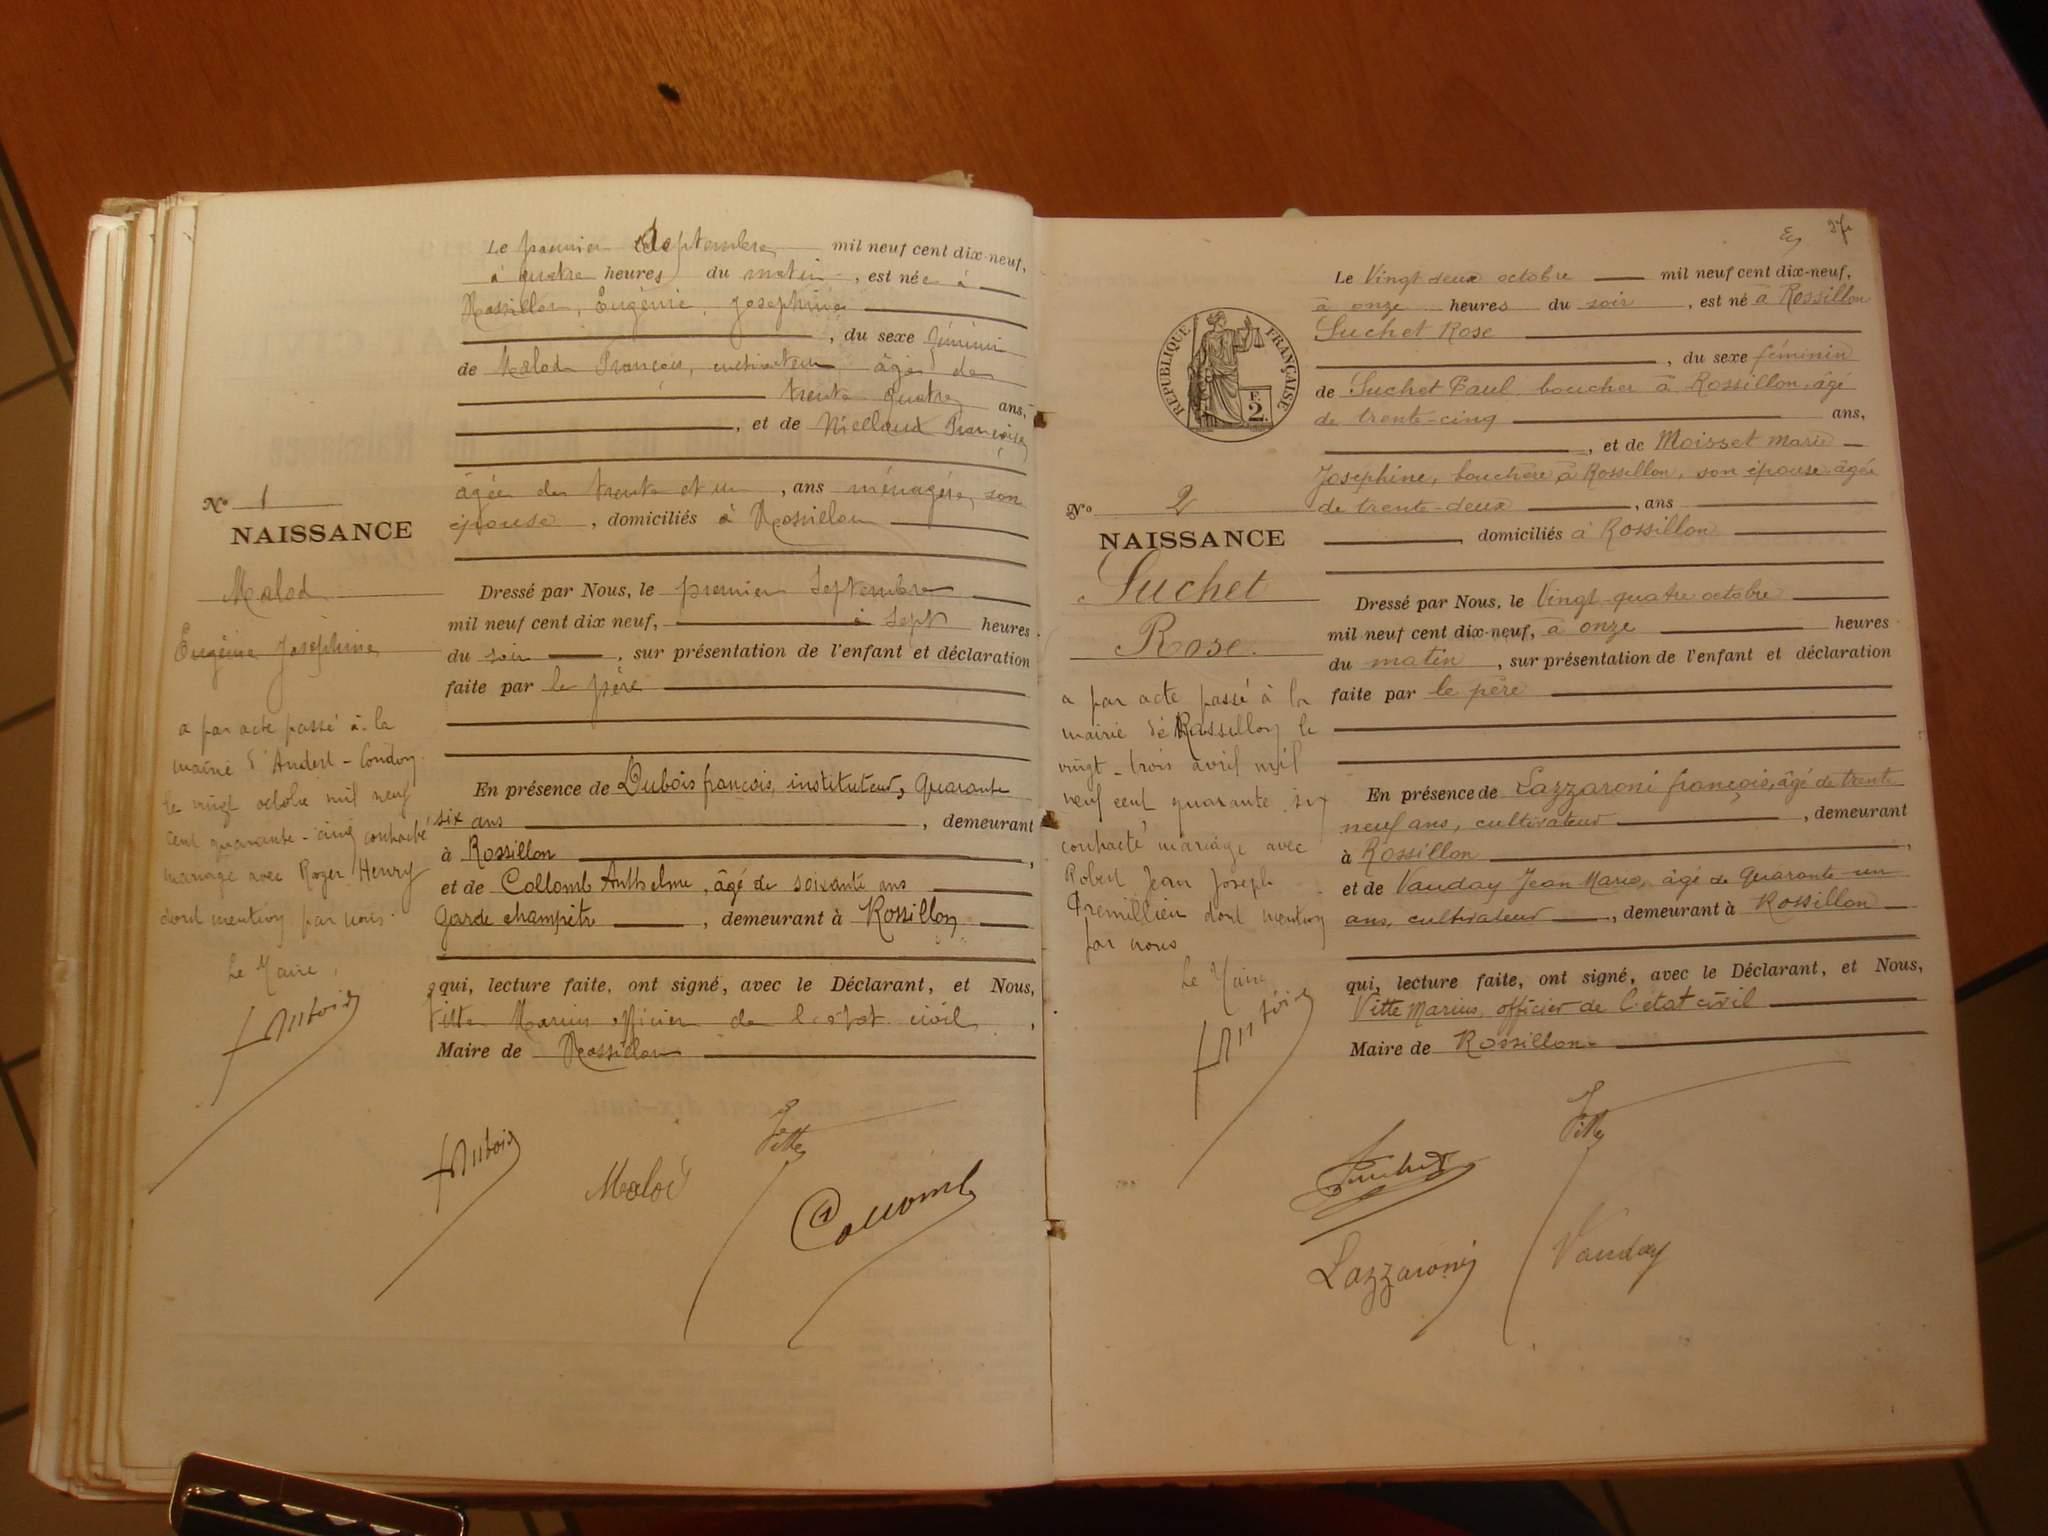 Le premier Septembre mil neuf cent dix-neuf,
à quatre heures du matin, est née à
Rossillon, Eugénie, Josephine
, du sexe féminin
de Malod François, cultivateur âgé de
trente quatre ans,
, et de Niellaud Françoise
âgée de trente et un, ans ménagère, son
épouse, domiciliés à Rossillon
N° 1
NAISSANCE
Malod
Eugénie Joséphine
Dressé par Nous, le premier Septembre
mil neuf cent dix neuf, à sept heures
du soir, sur présentation de l'enfant et déclaration
faite par le père
a par acte passé à la
mairie d'Andert-Condon
le vingt octobre mil neuf
cent quarante-cinq contracté
mariage avec Roger Henry
dont mention par nous.
Le Maire,
fDubois
En présence de Dubois francois, instituteur, quarante
six ans, demeurant
à Rossillon,
et de Collomb Anthelme, âgé de soixante ans
Garde champêtre, demeurant à Rossillon
qui, lecture faite, ont signé, avec le Déclarant, et Nous,
Vitte Marius officier de l'état civil,
Maire de Rossillon
fDubois
Malod
Vitte
Collomb
27
Le Vingt deux octobre mil neuf cent dix-neuf,
à onze heures du soir, est né à Rossillon
Suchet Rose
, du sexe féminin
de Suchet Paul boucher à Rossillon, âgé
de trente-cinq ans,
, et de Moisset marie
Joséphine, bouchère à Rossillon, son épouse âgée
de trente-deux, ans
, domiciliés à Rossillon
RÉPUBLIQUE FRANÇAISE
F. 2.
N° 2
NAISSANCE
Suchet
Rose.
Dressé par Nous, le Vingt-quatre octobre
mil neuf cent dix-neuf, à onze heures
du matin, sur présentation de l'enfant et déclaration
faite par le père
a par acte passé à la
mairie de Rossillon le
vingt-trois avril mil
neuf cent quarante six
contracté mariage avec
Robert Jean Joseph
dont mention
par nous
Le Maire
fDubois
En présence de Lazzaroni françois, âgé de trente
neuf ans, cultivateur, demeurant
à Rossillon,
et de Vauday Jean Marie, âgé de Quarante-un
ans, cultivateur, demeurant à Rossillon
qui, lecture faite, ont signé, avec le Déclarant, et Nous,
Vitte Marius, officier de l'état civil
Maire de Rossillon
Vitte
Suchet
Lazzaroni
Vauday